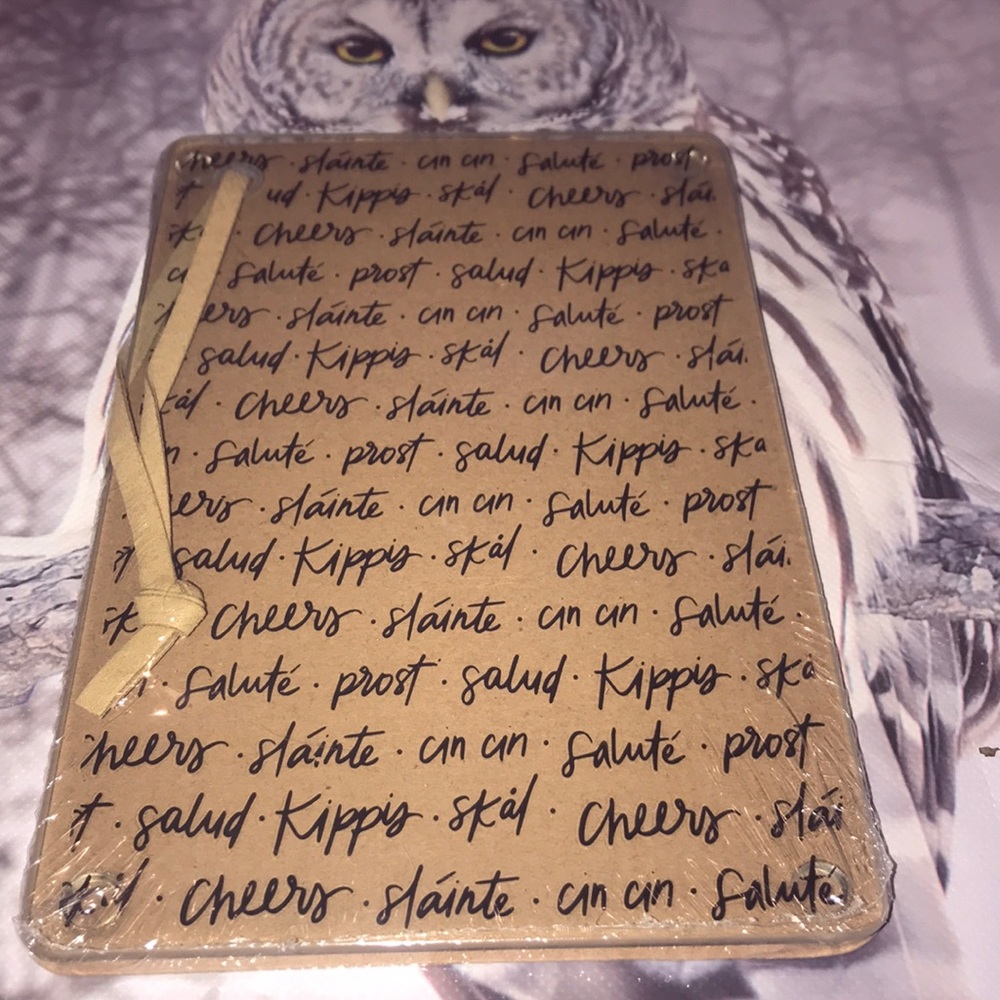 cheers · sláinte · cin cin · saluté · prost
ud · Kippis · skål · cheers · slái
sk · cheers · sláinte · cin cin · saluté ·
ci · saluté · prost · salud · Kippis · ska
ers · sláinte · cin cin · saluté · prost
salud · Kippis · skål · cheers · slái
kål · cheers · sláinte · cin cin · saluté ·
n · saluté · prost · salud · Kippis · ska
eers · sláinte · cin cin · saluté · prost
st · salud · Kippis · skål · cheers · slái
sk · cheers · sláinte · cin cin · saluté ·
· saluté · prost · salud · Kippis · skå
heers · sláinte · cin cin · saluté · prost
st · salud · Kippis · skål · cheers · slái
skål · cheers · sláinte · cin cin · saluté